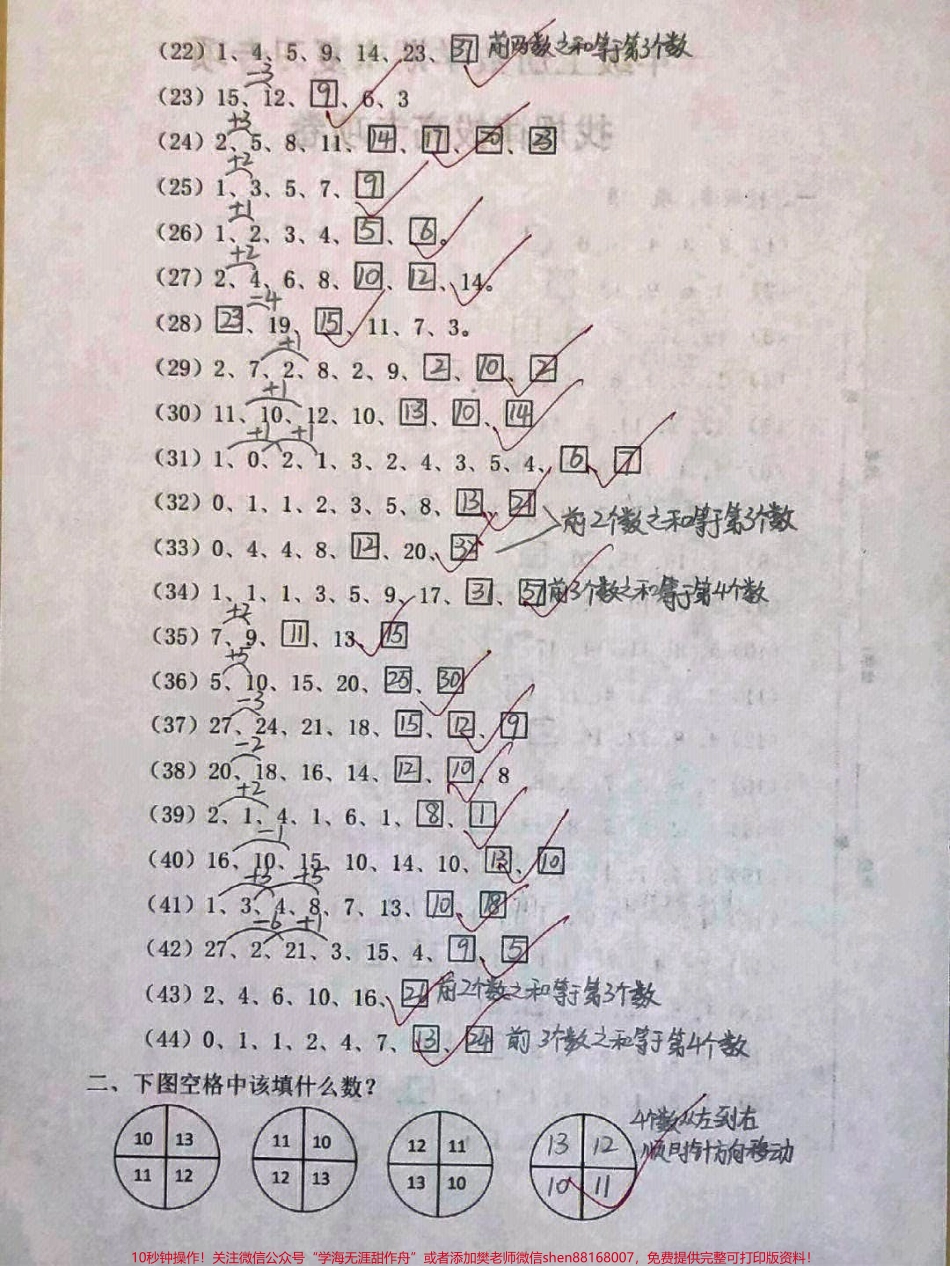 (22) 1、4、5、9、14、23、37 前两数之和等于第3个数
-3
(23) 15、12、9、6、3
+3
(24) 2、5、8、11、14、17、20、23
+2
(25) 1、3、5、7、9
+1
(26) 1、2、3、4、5、6。
+2
(27) 2、4、6、8、10、12、14。
-4
(28) 23、19、15、11、7、3。
+1
(29) 2、7、2、8、2、9、2、10、2
+1
(30) 11、10、12、10、13、10、14
+1 +1
(31) 1、0、2、1、3、2、4、3、5、4、6、7
(32) 0、1、1、2、3、5、8、13、21
前2个数之和等于第3个数
(33) 0、4、4、8、12、20、32
(34) 1、1、1、3、5、9、17、31、57 前3个数之和等于第4个数
+2
(35) 7、9、11、13、15
+5
(36) 5、10、15、20、25、30
-3
(37) 27、24、21、18、15、12、9
-2
(38) 20、18、16、14、12、10、8
+2
(39) 2、1、4、1、6、1、8、1
-1
(40) 16、10、15、10、14、10、13、10
+3 +5
(41) 1、3、4、8、7、13、10、18
-6 +1
(42) 27、2、21、3、15、4、9、5
(43) 2、4、6、10、16、 前2个数之和等于第3个数
(44) 0、1、1、2、4、7、13、24 前3个数之和等于第4个数
二、下图空格中该填什么数？
10 13 11 10 12 11 13 12
11 12 12 13 13 10 10 11
4个数从左到右
顺时针方向移动
10秒钟操作！关注微信公众号“学海无涯甜作舟”或者添加樊老师微信shen88168007，免费提供完整可打印版资料！